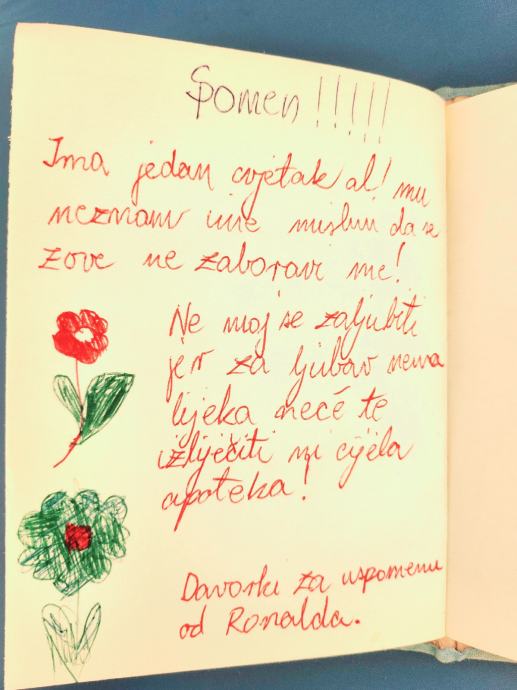 Spomen !!!!!
Ima jedan cvjetak al! mu
neznam ime mislim da se
zove ne zaboravi me!
Ne moj se zaljubiti
jer za ljubav nema
lijeka neće te
izliječiti ni cijela
apoteka!
Davorki za uspomenu
od Ronalda.